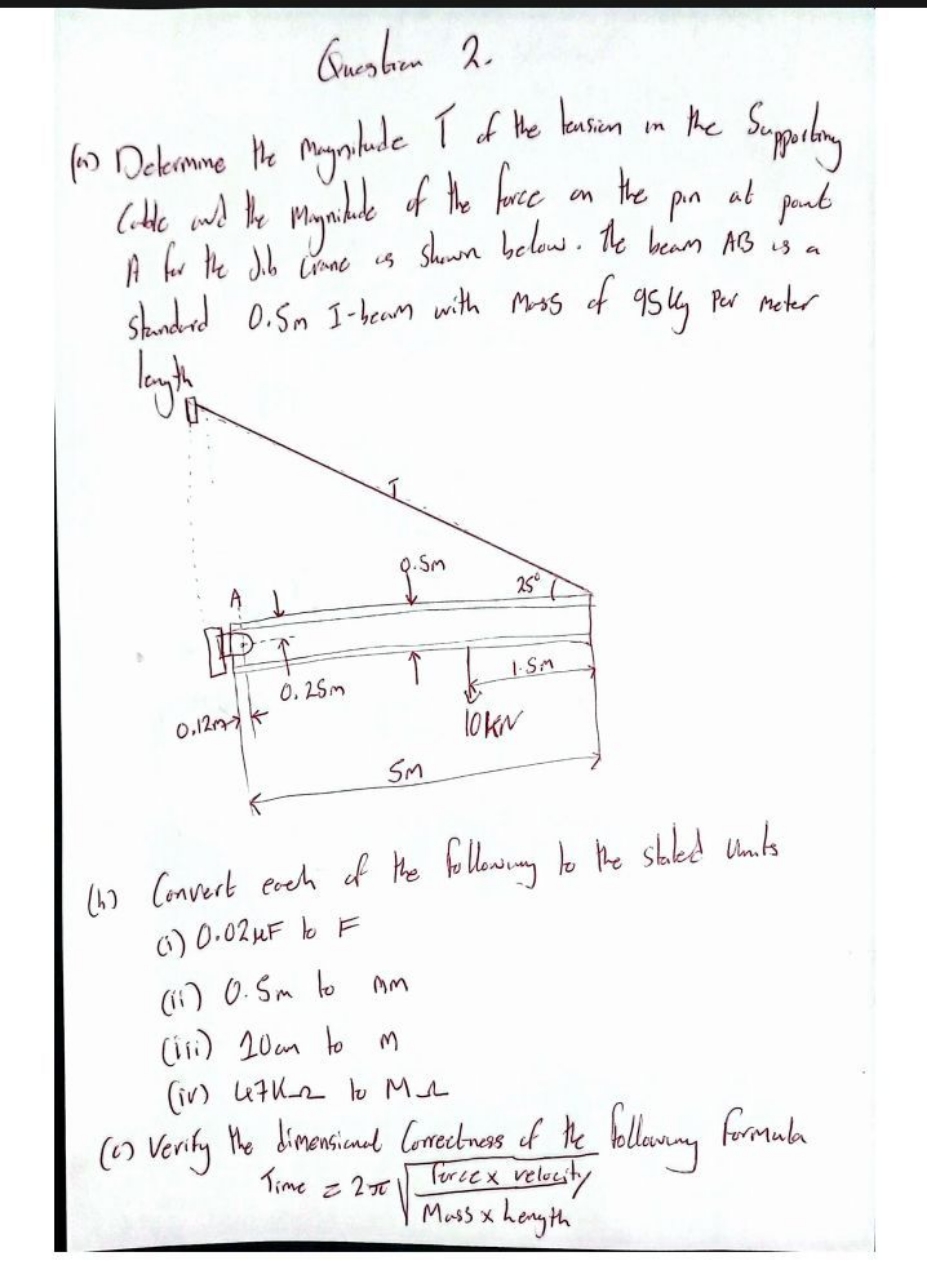 Question 2.
(a) Determine the Magnitude T of the tension in the Supporting
Cable and the Magnitude of the force on the pin at point
A for the Jib Crane is shown below. The beam AB is a
standard 0.5m I-beam with Mass of 95kg Per meter
length
T
0.5m
25°
A
0.25m
1.5m
0.12m
10KN
5m
(b) Convert each of the following to the stated Units
(i) 0.02μF to F
(ii) 0.5m to mm
(iii) 20cm to m
(iv) 47KΩ to MΩ
(c) Verify the dimensional Correctness of the following formula
Time = 2π√
Force x velocity
Mass x Length